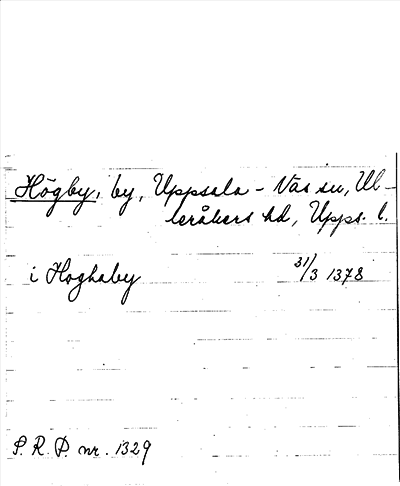 Högby, by, Uppsala - Näs sn, Ul-
leråkers hd, Upps. l.
i Hoghaby 31/3 1378
S. R. P. nr. 1329